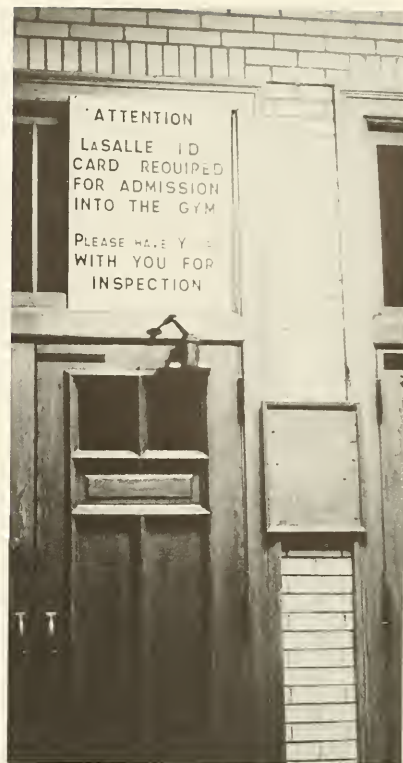 ATTENTION
LASALLE ID
CARD REQUIRED
FOR ADMISSION
INTO THE GYM
PLEASE HAVE
WITH YOU FOR
INSPECTION